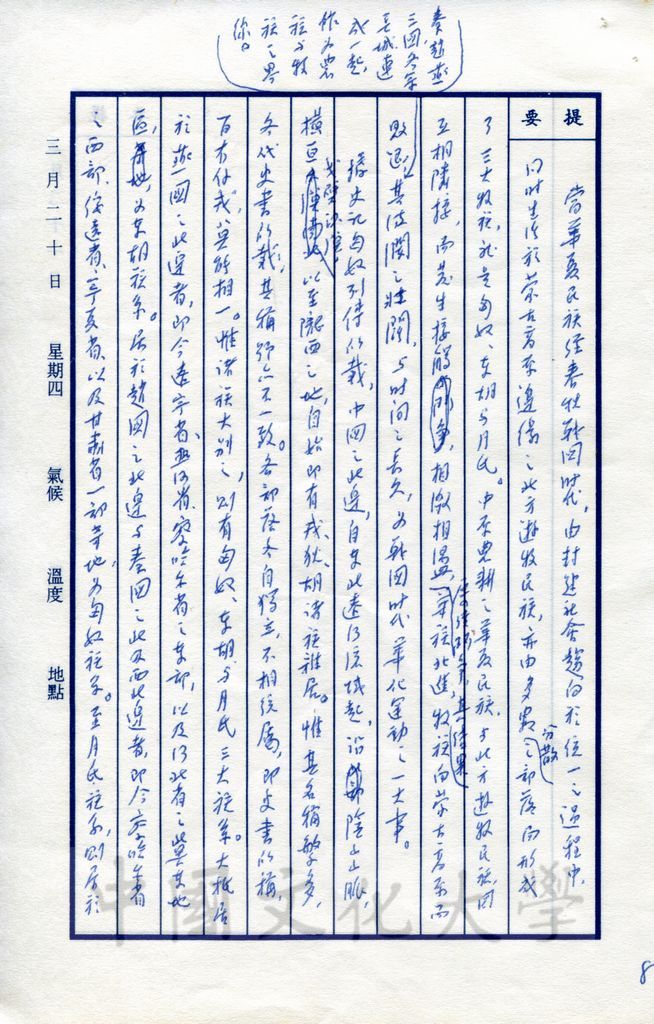 提要
三月二十日 星期四 氣候 溫度 地點
秦趙燕
三國各築
長城連
成一起
作為農
族與牧
族之界
當華夏民族經春秋戰國時代，由封建社會趨向於統一之過程中，
同時生活於蒙古高原邊緣之北方遊牧民族，亦由多數分散之部落而形成
了三大牧族，就是匈奴、東胡與月氏。中原農耕之華夏民族，與北方遊牧民族，因
互相隣接，而發生接觸鬥爭，相激相盪，其結果農族北進，牧族向蒙古高原而
敗退，其波瀾之壯闊，與時間之長久，為戰國時代華化運動之一大事。
據史記匈奴列傳所載，中國之北邊，自東北遼河流域起，沿陰山山脈，
橫亘以至隴西之地，自始即有戎、狄、胡諸族雜居。惟其名稱繁多，
各代史書所載，其稱號亦不一致。各部落各自獨立，不相統屬，即史書所稱，
百有餘戎，莫能相一。惟諸族大別之，則有匈奴、東胡與月氏三大族系。大抵居
於燕國之北邊者，即今遼寧省、熱河省、察哈爾省之東部，以及河北省之北其地
區，為東胡族系。居於趙國之北邊與秦國之北及西北邊者，即今察哈爾省
之西部、綏遠省、寧夏省，以及甘肅省一部等地，為匈奴族系。至月氏族系，則居於
8
中國文化大學